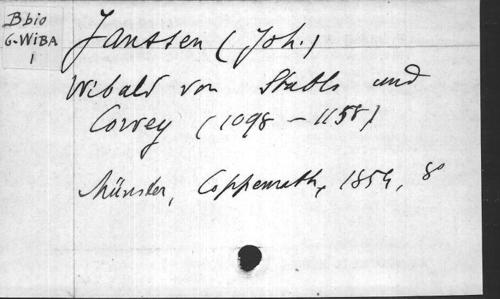 Bbio
G-WIBA
1
Janssen (Joh.)
Wibald von Stablo und
Corvey (1098 - 1158)
Münster, Coppenrath, 1854, 8°